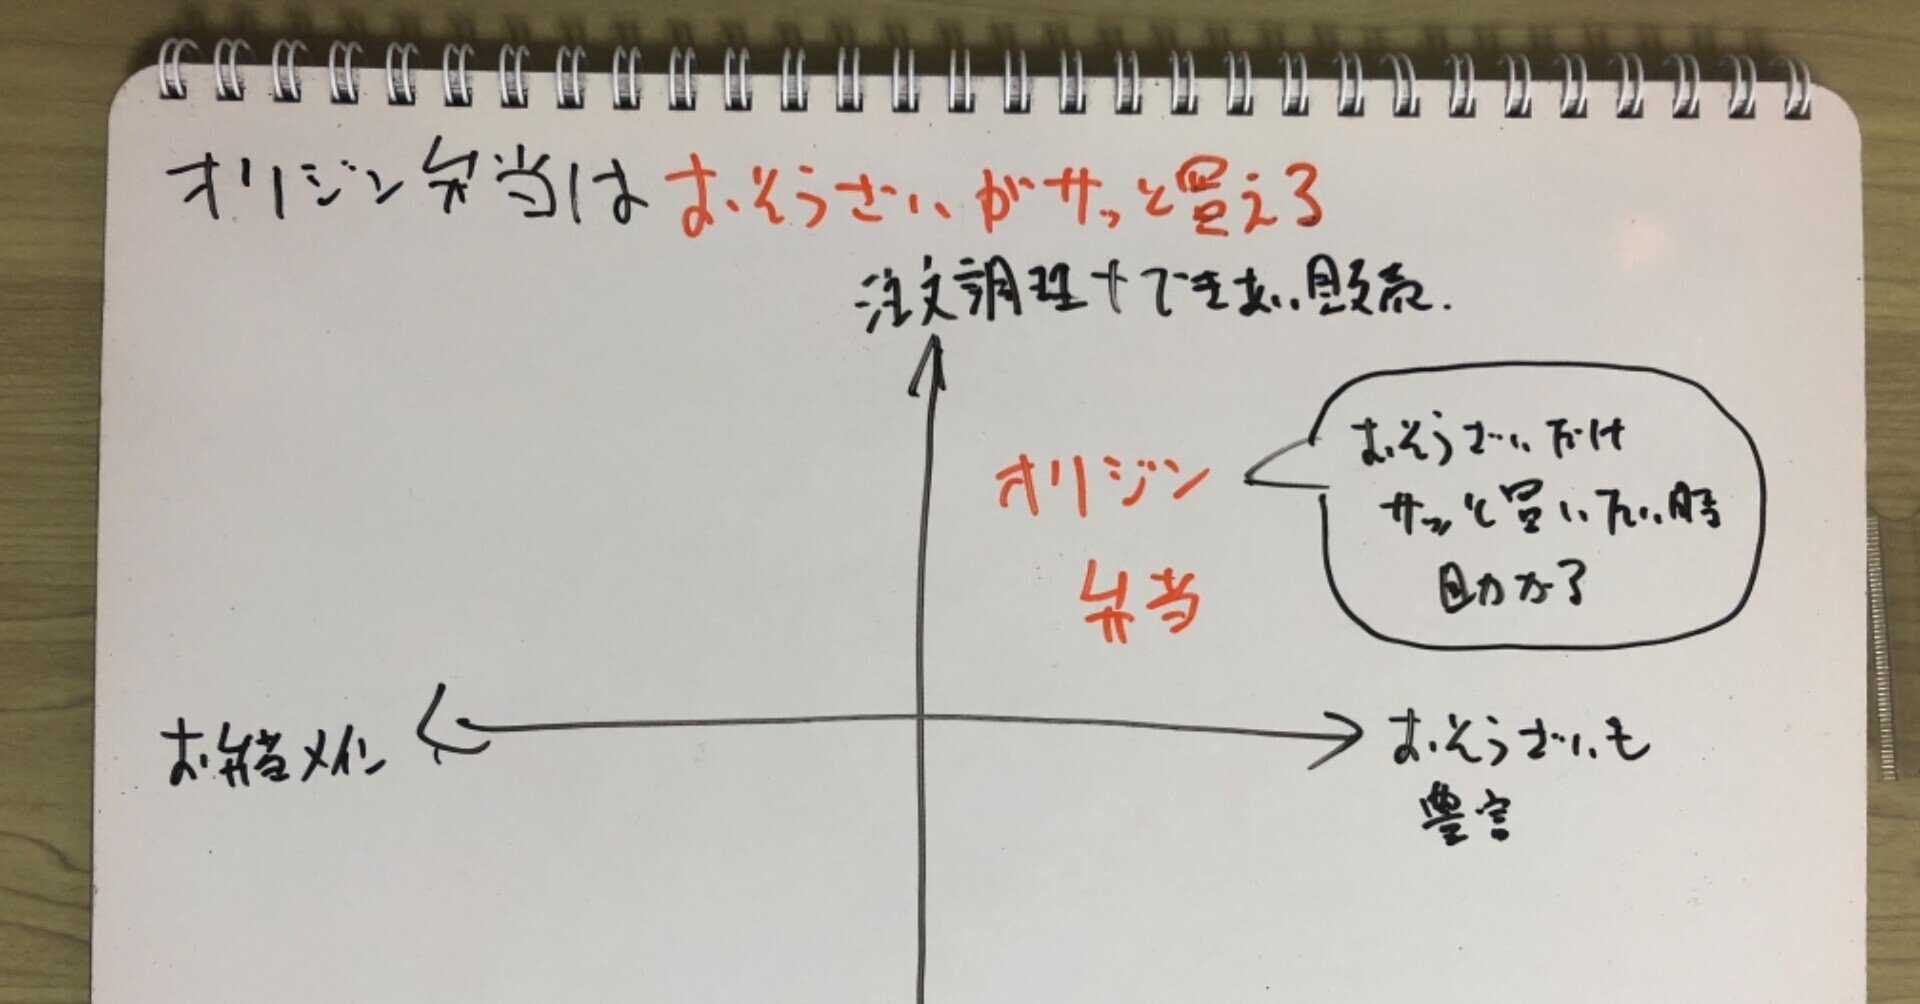 オリジン弁当はおそうざいがサッと買える
注文調理+できあい販売.
オリジン
弁当
おそうざいだけ
サッと買いたい時
助かる
お弁当メイン
おそうざいも
豊富